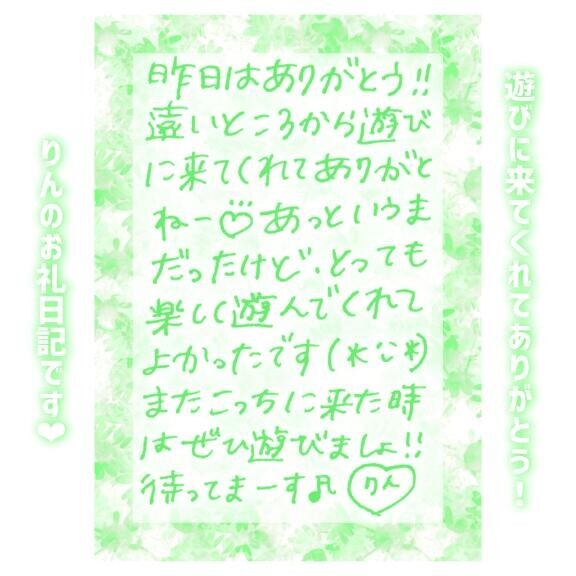 遊びに来てくれてありがとう!
昨日はありがとう!!
遠いところから遊び
に来てくれてありがと
ねー♡あっというま
だったけど、とっても
楽しく遊んでくれて
よかったです(*¨*)
またこっちに来た時
はぜひ遊びましょ!!
待ってまーす♬ りん
りんのお礼日記です❤